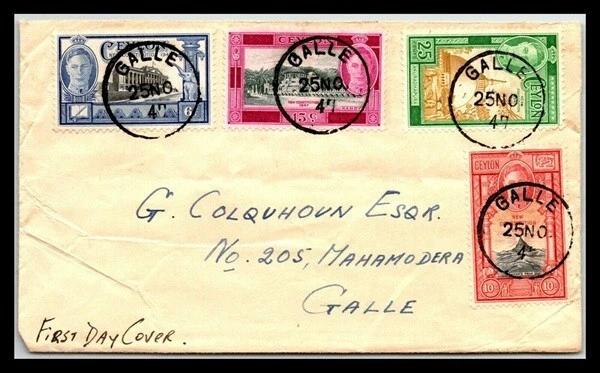 CEYLON
6
GALLE
25NO
47
15 C
GALLE
25NO
47
25
CEYLON
GALLE
25NO.
47
CEYLON
NEW
10
10
GALLE
25NO.
4
G. COLQUHOUN ESQR.
No. 205, MAHAMODERA
GALLE
FIRST DAY COVER.